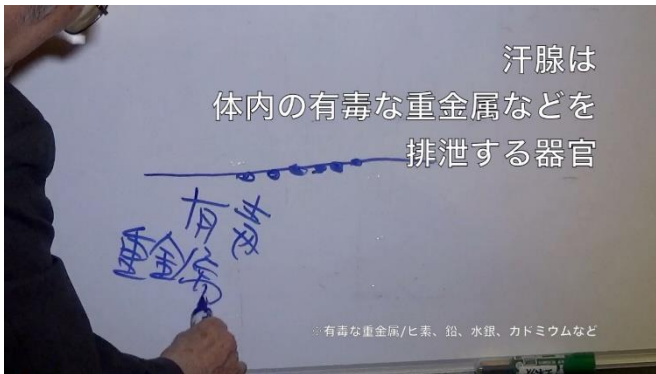 汗腺は
体内の有毒な重金属などを
排泄する器官
有毒
重金属
※有毒な重金属/ヒ素、鉛、水銀、カドミウムなど